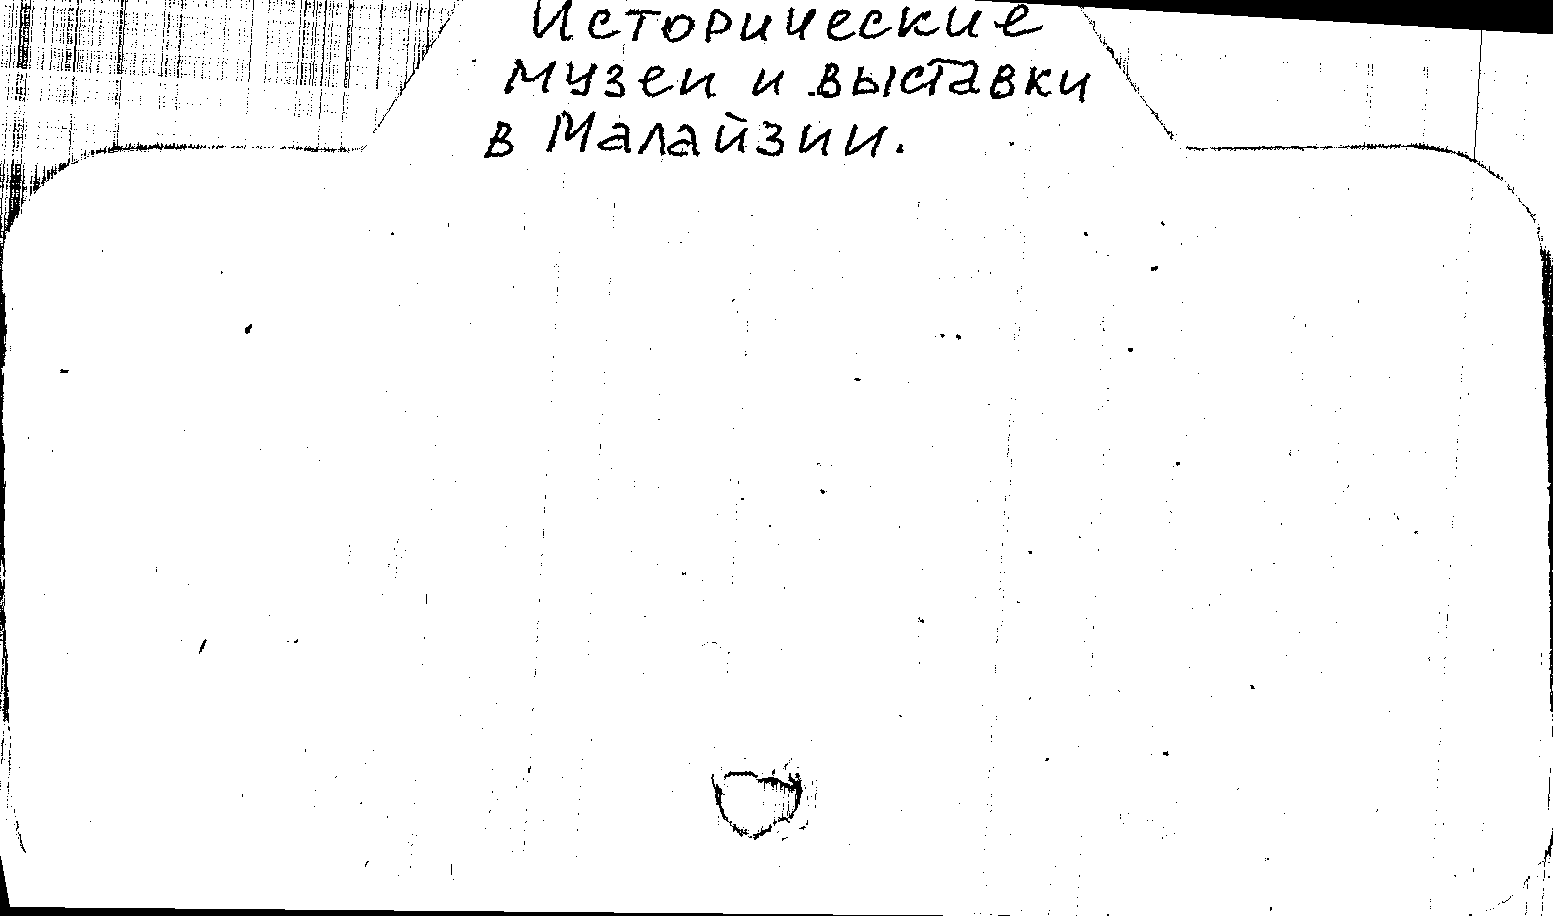 Исторические
музеи и выставки
в Малайзии.